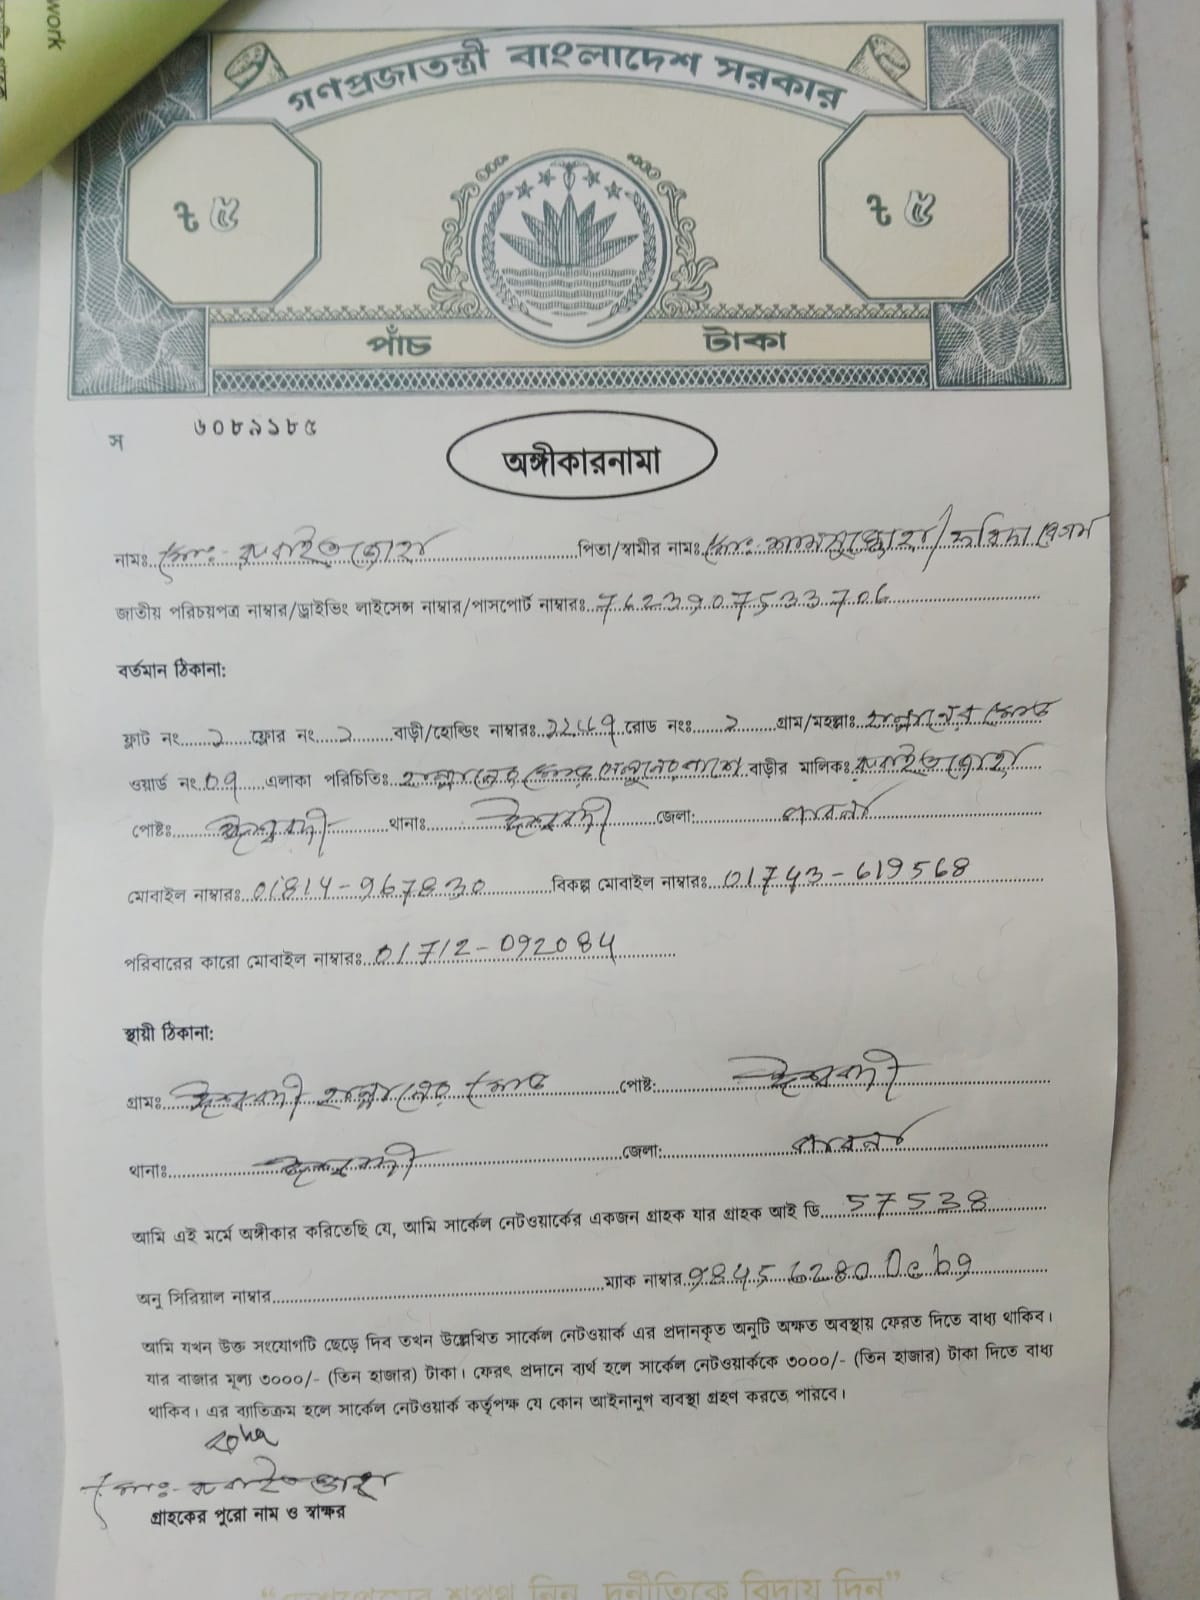 work
গণপ্রজাতন্ত্রী বাংলাদেশ সরকার
৳ ৫
৳ ৫
পাঁচ টাকা
স ৬০৮৯১৮৫
অঙ্গীকারনামা
নামঃ মোঃ- রুবাইতজোহা পিতা/স্বামীর নামঃ মোঃ- শামসুজ্জোহা/ফরিদা বেগম
জাতীয় পরিচয়পত্র নাম্বার/ড্রাইভিং লাইসেন্স নাম্বার/পাসপোর্ট নাম্বারঃ 7623907533706
বর্তমান ঠিকানা:
ফ্লাট নং ২ ফ্লোর নং ২ বাড়ী/হোল্ডিং নাম্বারঃ রোড নংঃ ২ গ্রাম/মহল্লাঃ মোড়
ওয়ার্ড নং 09 এলাকা পরিচিতিঃ মোড় পাশে বাড়ীর মালিকঃ রুবাইতজোহা
পোষ্টঃ ঈশ্বরদী থানাঃ ঈশ্বরদী জেলা: পাবনা
মোবাইল নাম্বারঃ 01814-967830 বিকল্প মোবাইল নাম্বারঃ 01743-619568
পরিবারের কারো মোবাইল নাম্বারঃ 01712-092084
স্থায়ী ঠিকানা:
গ্রামঃ ঈশ্বরদী মোড় পোষ্ট: ঈশ্বরদী
থানাঃ ঈশ্বরদী জেলা: পাবনা
আমি এই মর্মে অঙ্গীকার করিতেছি যে, আমি সার্কেল নেটওয়ার্কের একজন গ্রাহক যার গ্রাহক আই ডি 57538
অনু সিরিয়াল নাম্বার ম্যাক নাম্বার 984562800cb9
আমি যখন উক্ত সংযোগটি ছেড়ে দিব তখন উল্লেখিত সার্কেল নেটওয়ার্ক এর প্রদানকৃত অনুটি অক্ষত অবস্থায় ফেরত দিতে বাধ্য থাকিব।
যার বাজার মূল্য ৩০০০/- (তিন হাজার) টাকা। ফেরৎ প্রদানে ব্যর্থ হলে সার্কেল নেটওয়ার্ককে ৩০০০/- (তিন হাজার) টাকা দিতে বাধ্য
থাকিব। এর ব্যাতিক্রম হলে সার্কেল নেটওয়ার্ক কর্তৃপক্ষ যে কোন আইনানুগ ব্যবস্থা গ্রহণ করতে পারবে।
মোঃ- রুবাইতজোহা
গ্রাহকের পুরো নাম ও স্বাক্ষর
শপথ নিন, দুর্নীতিকে বিদায় দিন”